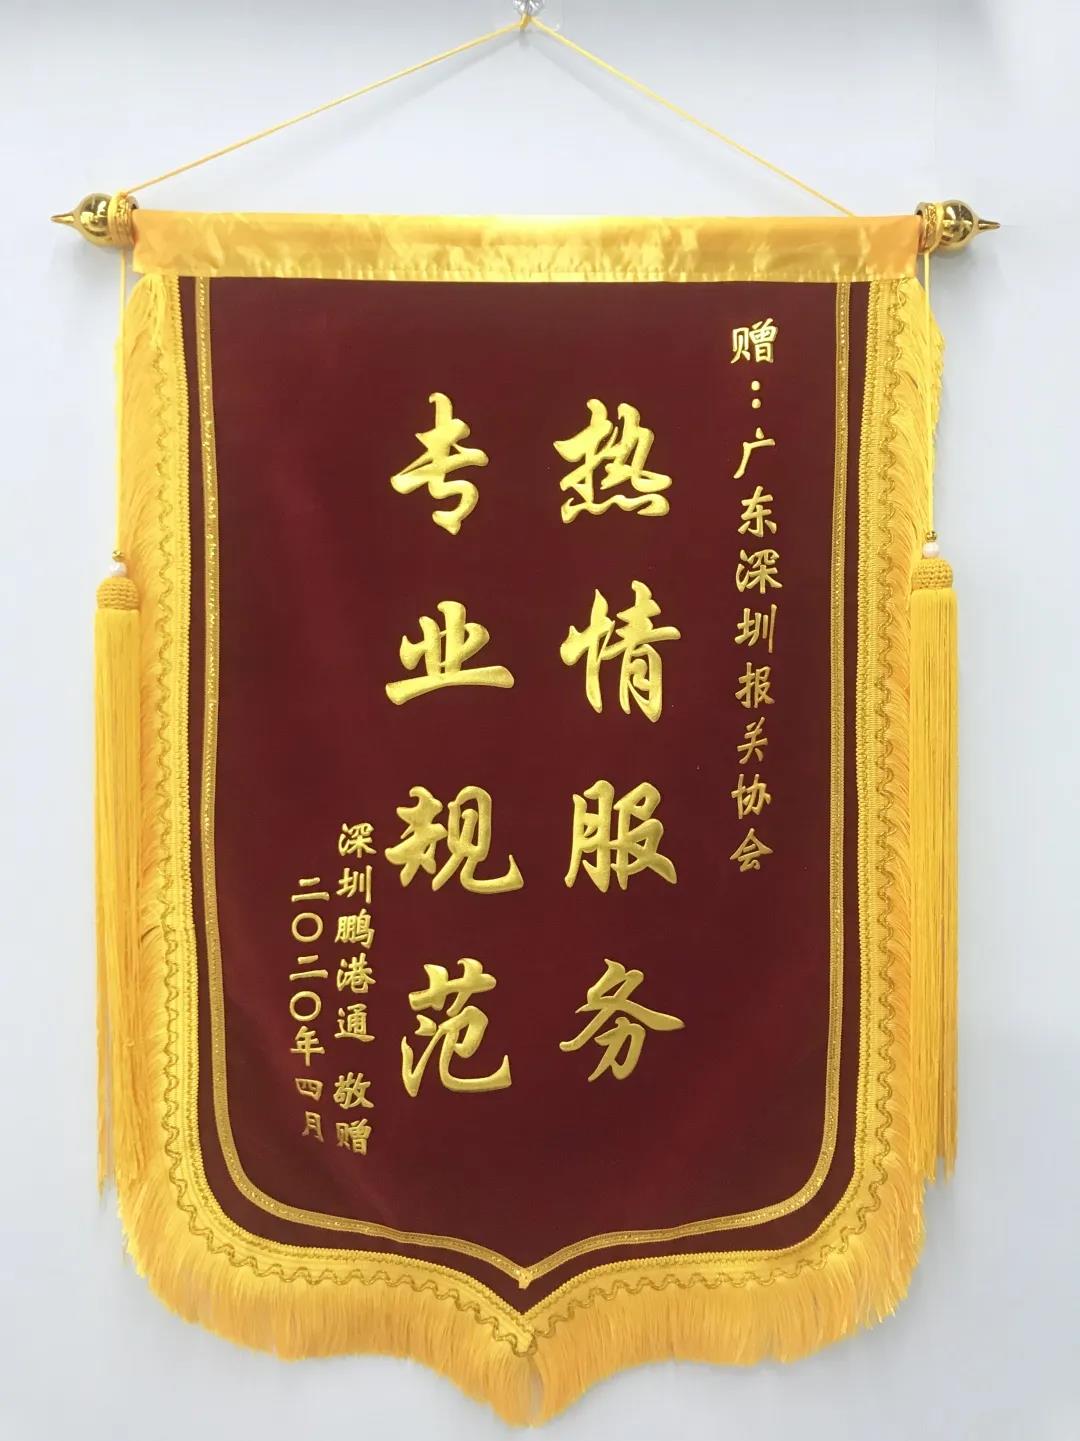 赠：广东深圳报关协会
热情服务
专业规范
深圳鹏港通 敬赠
二〇二〇年四月